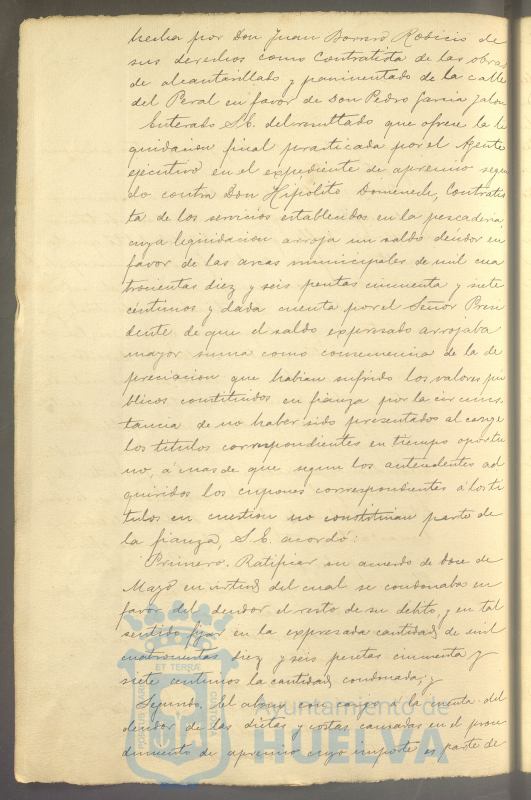 hecha por Don Juan Borrero Rodicio de
sus derechos como Contratista de las obras
de alcantarillado y pavimentado de la calle
del Peral en favor de Don Pedro Garcia Jalon
Enterado S.E. del resultado que ofrece la li
quidacion final practicada por el Agente
ejecutivo en el expediente de apremio segui
do contra Don Hipólito Domenech, Contratis
ta de los servicios establecidos en la pescaderia
cuya liquidacion arroja un saldo deudor en
favor de las arcas municipales de mil cua
trocientas diez y seis pesetas cincuenta y siete
céntimos y dada cuenta por el Señor Presi
dente de que el saldo expresado arrojaba
mayor suma como consecuencia de la de
preciacion que habian sufrido los valores pú
blicos constituidos en fianza por la circuns
tancia de no haber sido presentados al cange
los titulos correspondientes en tiempo oportu
no, á mas de que segun los antecedentes ad
quiridos los cupones correspondientes á los ti
tulos en cuestion no constituian parte de
la fianza, S.E. acordó:
Primero. Ratificar su acuerdo de doce de
Mayo en virtud del cual se condonaba en
favor del deudor el resto de su debito y en tal
sentido fijar en la expresada cantidad de mil
cuatrocientas diez y seis pesetas cincuenta y
siete centimos la cantidad condonada; y
Segundo. El abono con cargo á la cuenta del
deudor de las dietas y costas causadas en el proce
dimiento de apremio cuyo importe es parte de
ET TERRÆ
Ayuntamiento de
HUELVA